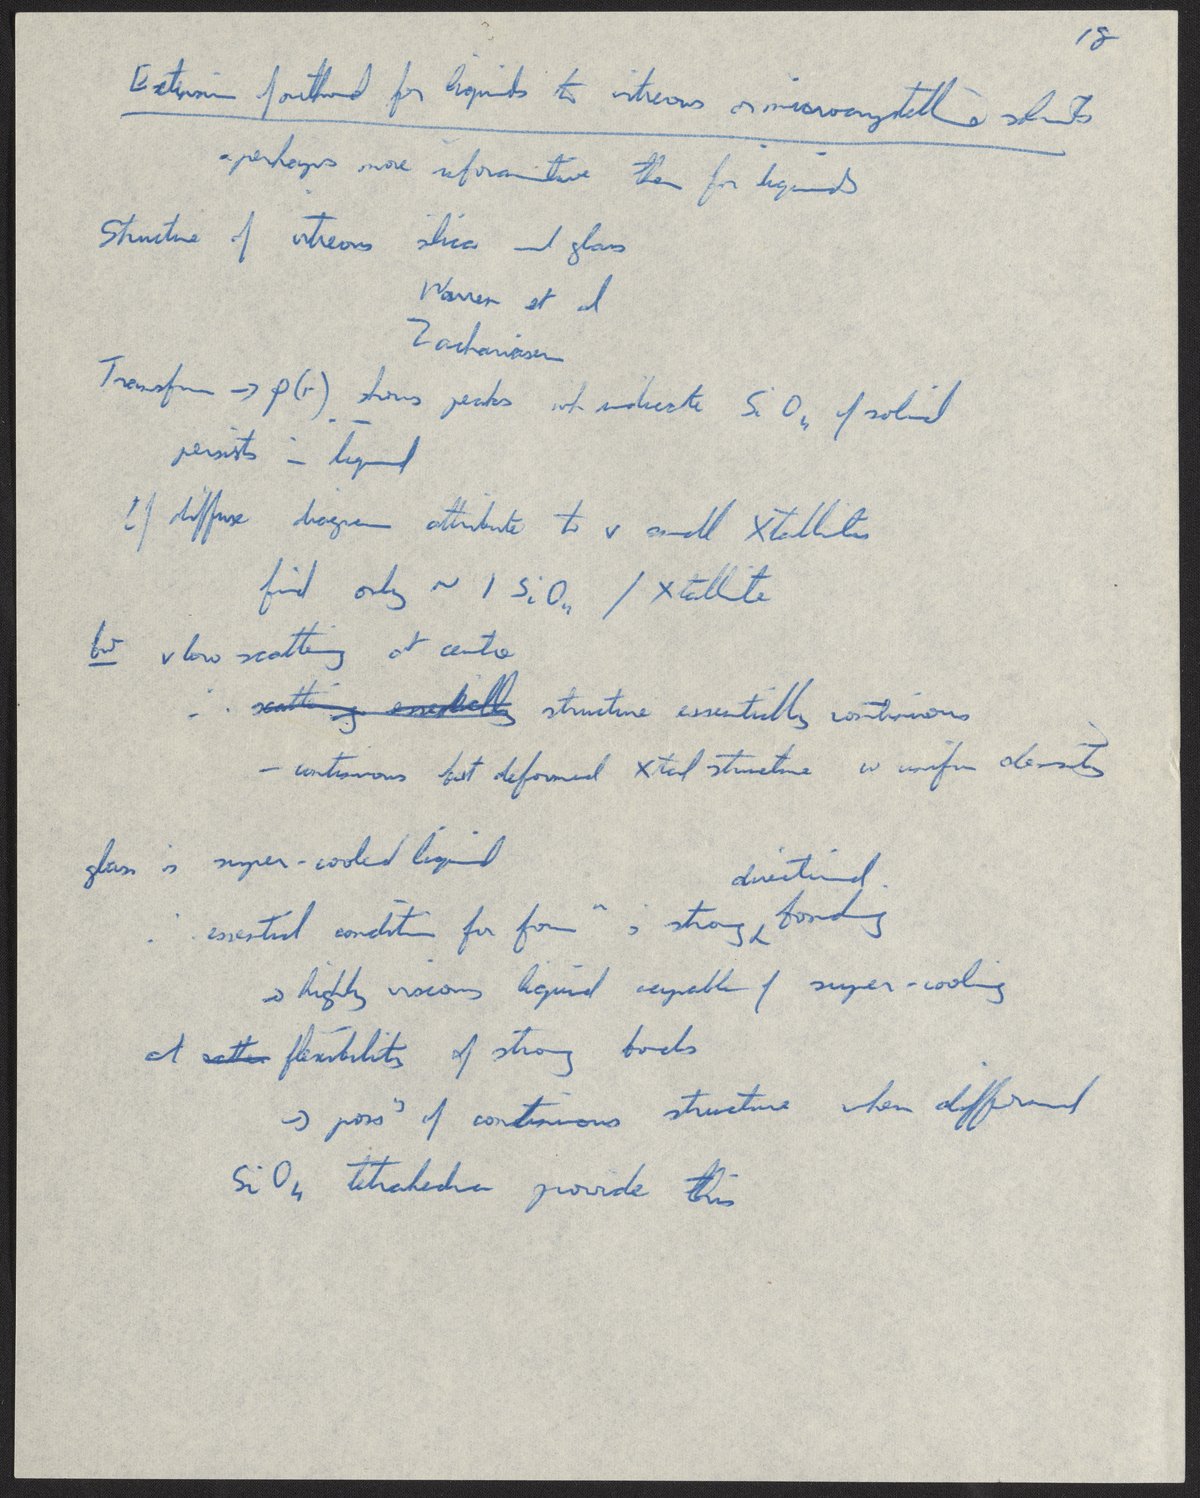 18
Extension of method for liquids to vitreous or microcrystalline solids
- perhaps more informative than for liquids
Structure of vitreous silica and glass
Warren et al
Zachariasen
Transform → ρ(r) shows peaks wh indicate SiO₄ of solid
persists in liquid
If diffuse diagram attribute to v small Xtallites
find only ~ 1 SiO₄ / Xtallite
but v low scattering at centre
∴ scattering essentially structure essentially continuous
- continuous but deformed Xtal structure w uniform density
glass is super-cooled liquid
∴ essential condition for formⁿ is strong directional bonding
→ highly viscous liquid capable of super-cooling
at flexibility of strong bonds
→ possʸ of continuous structure when deformed
SiO₄ tetrahedra provide this